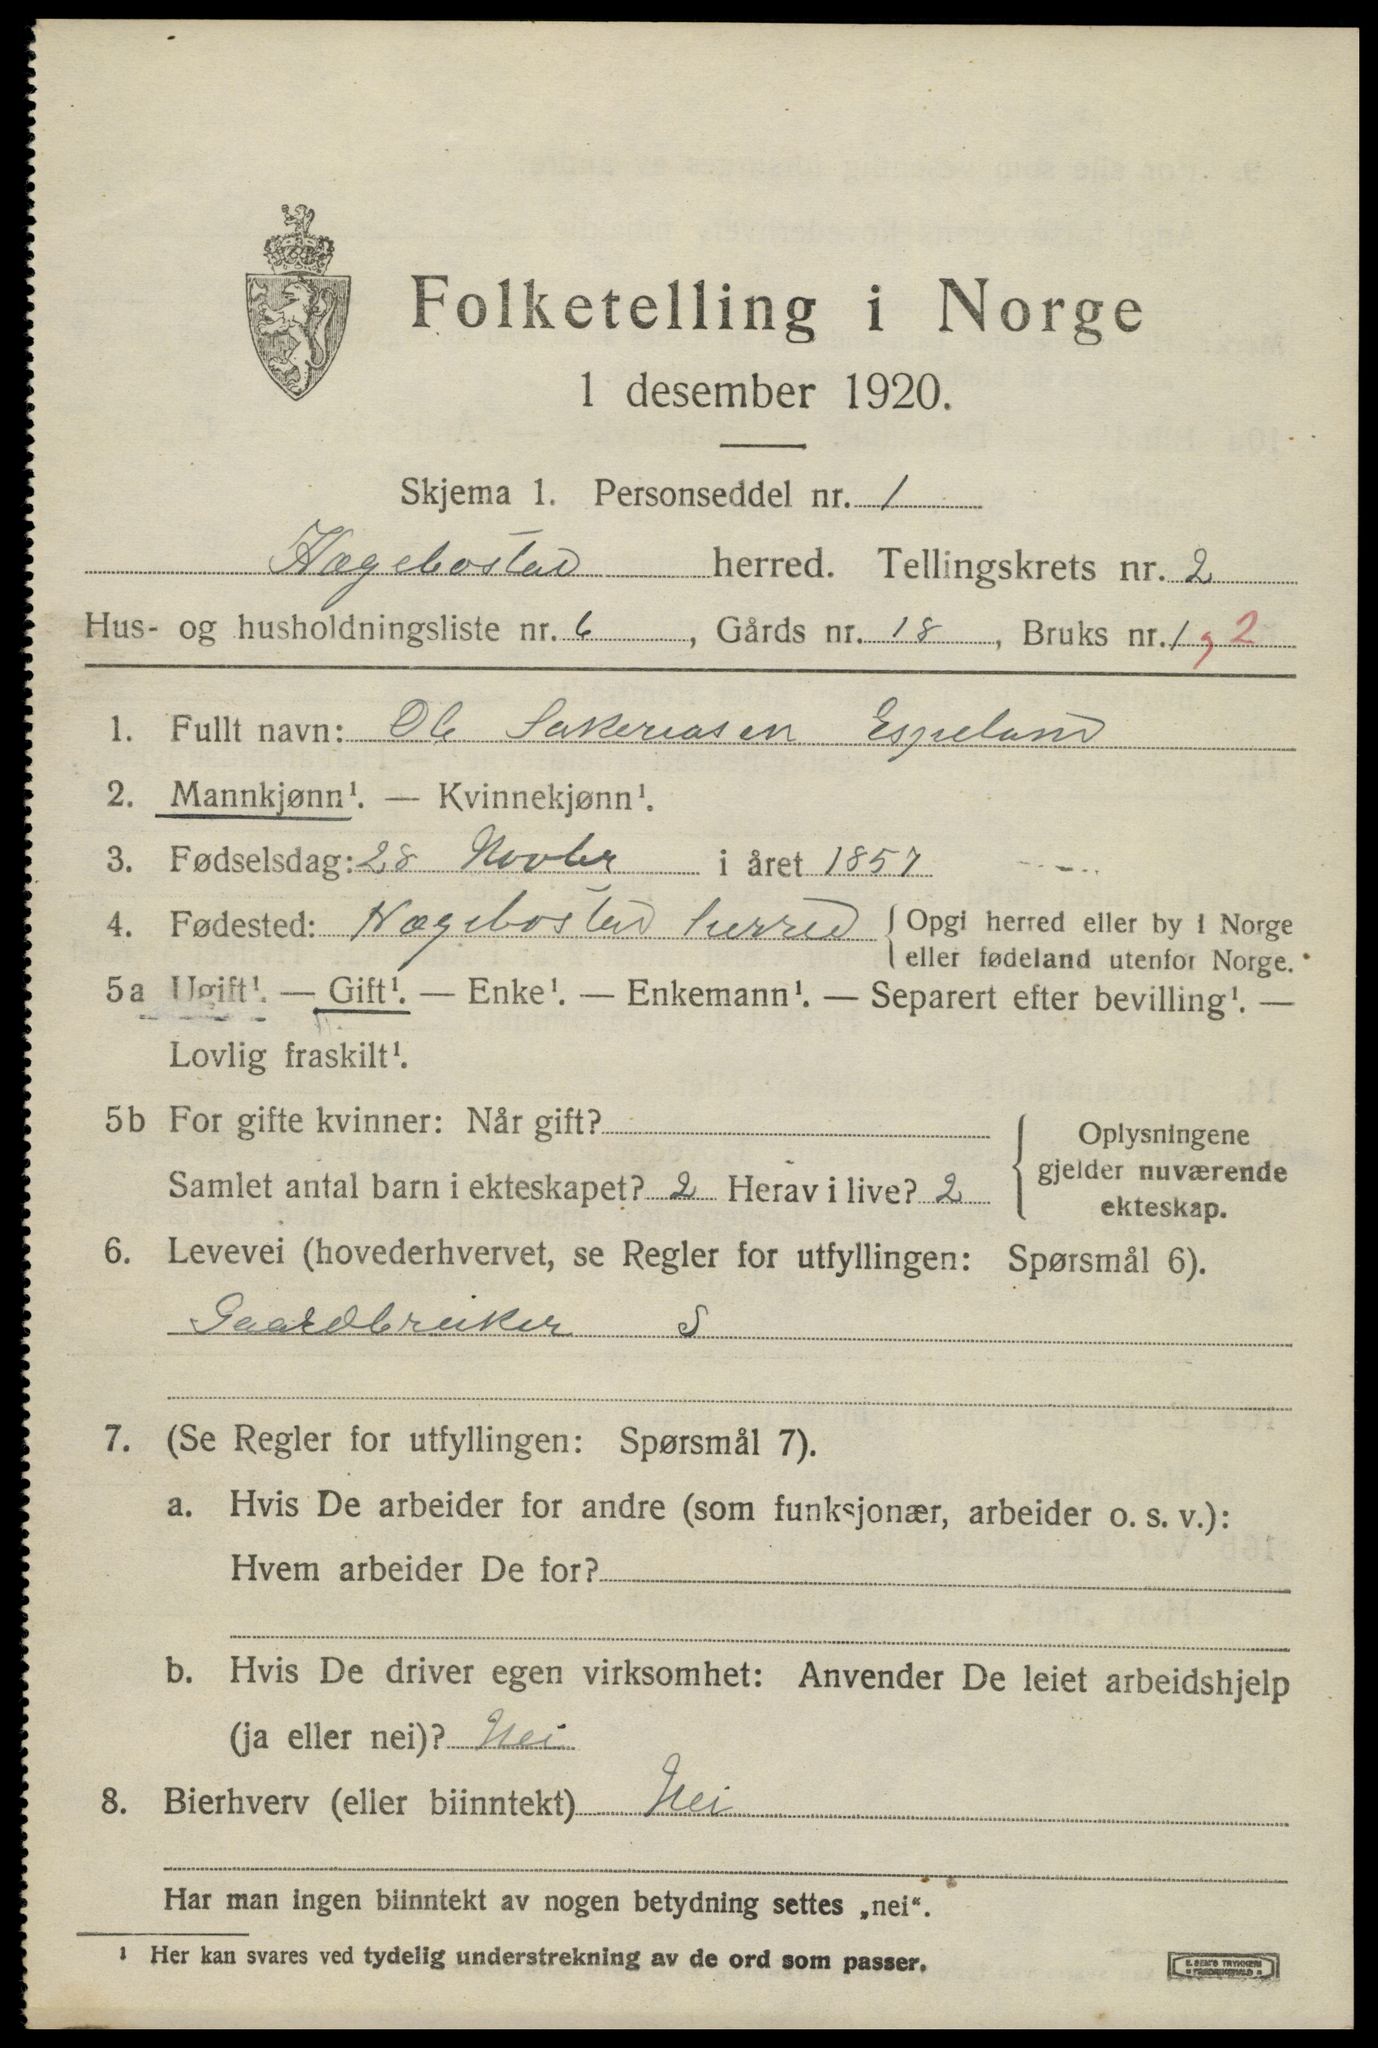 Folketelling i Norge
1 desember 1920.
Skjema 1. Personseddel nr. 1
Hægebostad herred. Tellingskrets nr. 2
Hus- og husholdningsliste nr. 6, Gårds nr. 18, Bruks nr. 1 g 2
1. Fullt navn: Ole Sakeriasen Espeland
2. Mannkjønn¹. — Kvinnekjønn¹.
3. Fødselsdag: 28 Novbr i året 1857
4. Fødested: Hægebostad herred { Opgi herred eller by i Norge
eller fødeland utenfor Norge.
5a Ugift¹. — Gift¹. — Enke¹. — Enkemann¹. — Separert efter bevilling¹. —
Lovlig fraskilt¹.
5b For gifte kvinner: Når gift?
Samlet antal barn i ekteskapet? 2 Herav i live? 2
Oplysningene
gjelder nuværende
ekteskap.
6. Levevei (hovederhvervet, se Regler for utfyllingen: Spørsmål 6).
Gaardbruker S
7. (Se Regler for utfyllingen: Spørsmål 7).
a. Hvis De arbeider for andre (som funksjonær, arbeider o. s. v.):
Hvem arbeider De for?
b. Hvis De driver egen virksomhet: Anvender De leiet arbeidshjelp
(ja eller nei)? Nei
8. Bierhverv (eller biinntekt) Nei
Har man ingen biinntekt av nogen betydning settes „nei“.
¹ Her kan svares ved tydelig understrekning av de ord som passer.
E. SEM'S TRYKKERI
FREDRIKSHALD